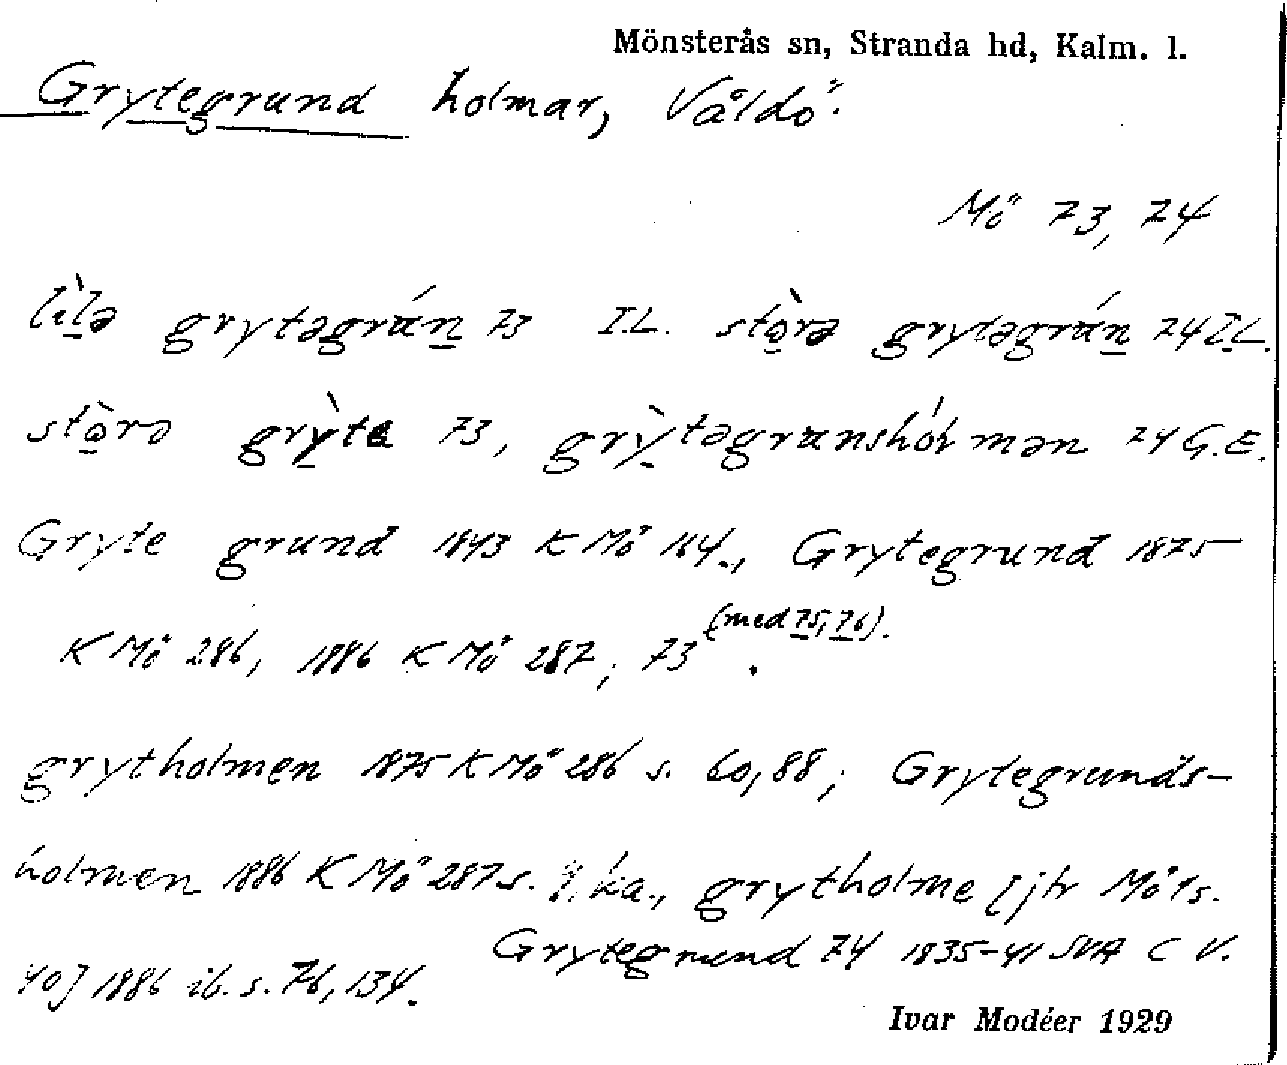 Mönsterås sn, Stranda hd, Kalm. l.
Grytegrund holmar, Våldö.
Mö 73, 74
lìlə grytəgrún 73 I.L. stòrə grytəgrún 74 I.L.
stòrə grỳte 73, grỳtəgrunshólmən 74 G.E.
Gryte grund 1843 K Mö 164., Grytegrund 1875
K Mö 286, 1886 K Mö 287, 73 (med 75, 76).
grytholmen 1875 K Mö 286 s. 60, 88; Grytegrunds-
holmen 1886 K Mö 287 s. ka., grytholme [jfr Mö 1 s.
40] 1886 ib. s. 76, 134. Grytegrund 74 1835-41 SVA C V.
Ivar Modéer 1929